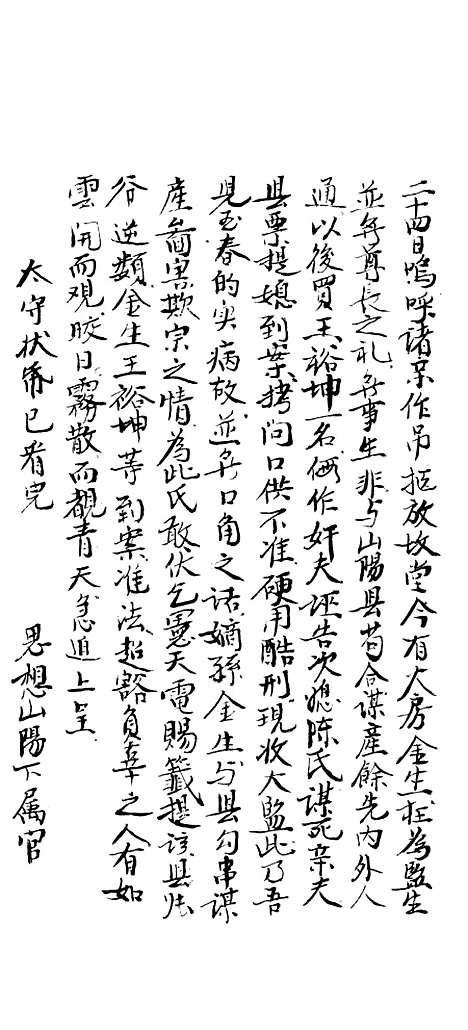 二十四日嗚呼諸亲作吊柩放故堂今有大房金生枉為監生
並無尊長之礼無事生非与山陽县苟合謀產餘先內外人
通以後買王裕坤一名假作奸夫誣告次媳陈氏謀死亲夫
县尊提媳到案拷问口供不准硬用酷刑現收大監此乃吾
児玉春的实病故並無口角之话嫡孫金生与县勾串謀
產啚害欺宗之情為此氏敢伏乞憲天電賜籤提该县贓
谷逆類金生王裕坤等到案准法超豁負辜之人有如
雲開而观皎日霧散而覩青天急迫上呈
太守状帋已看完 思想山陽下属官